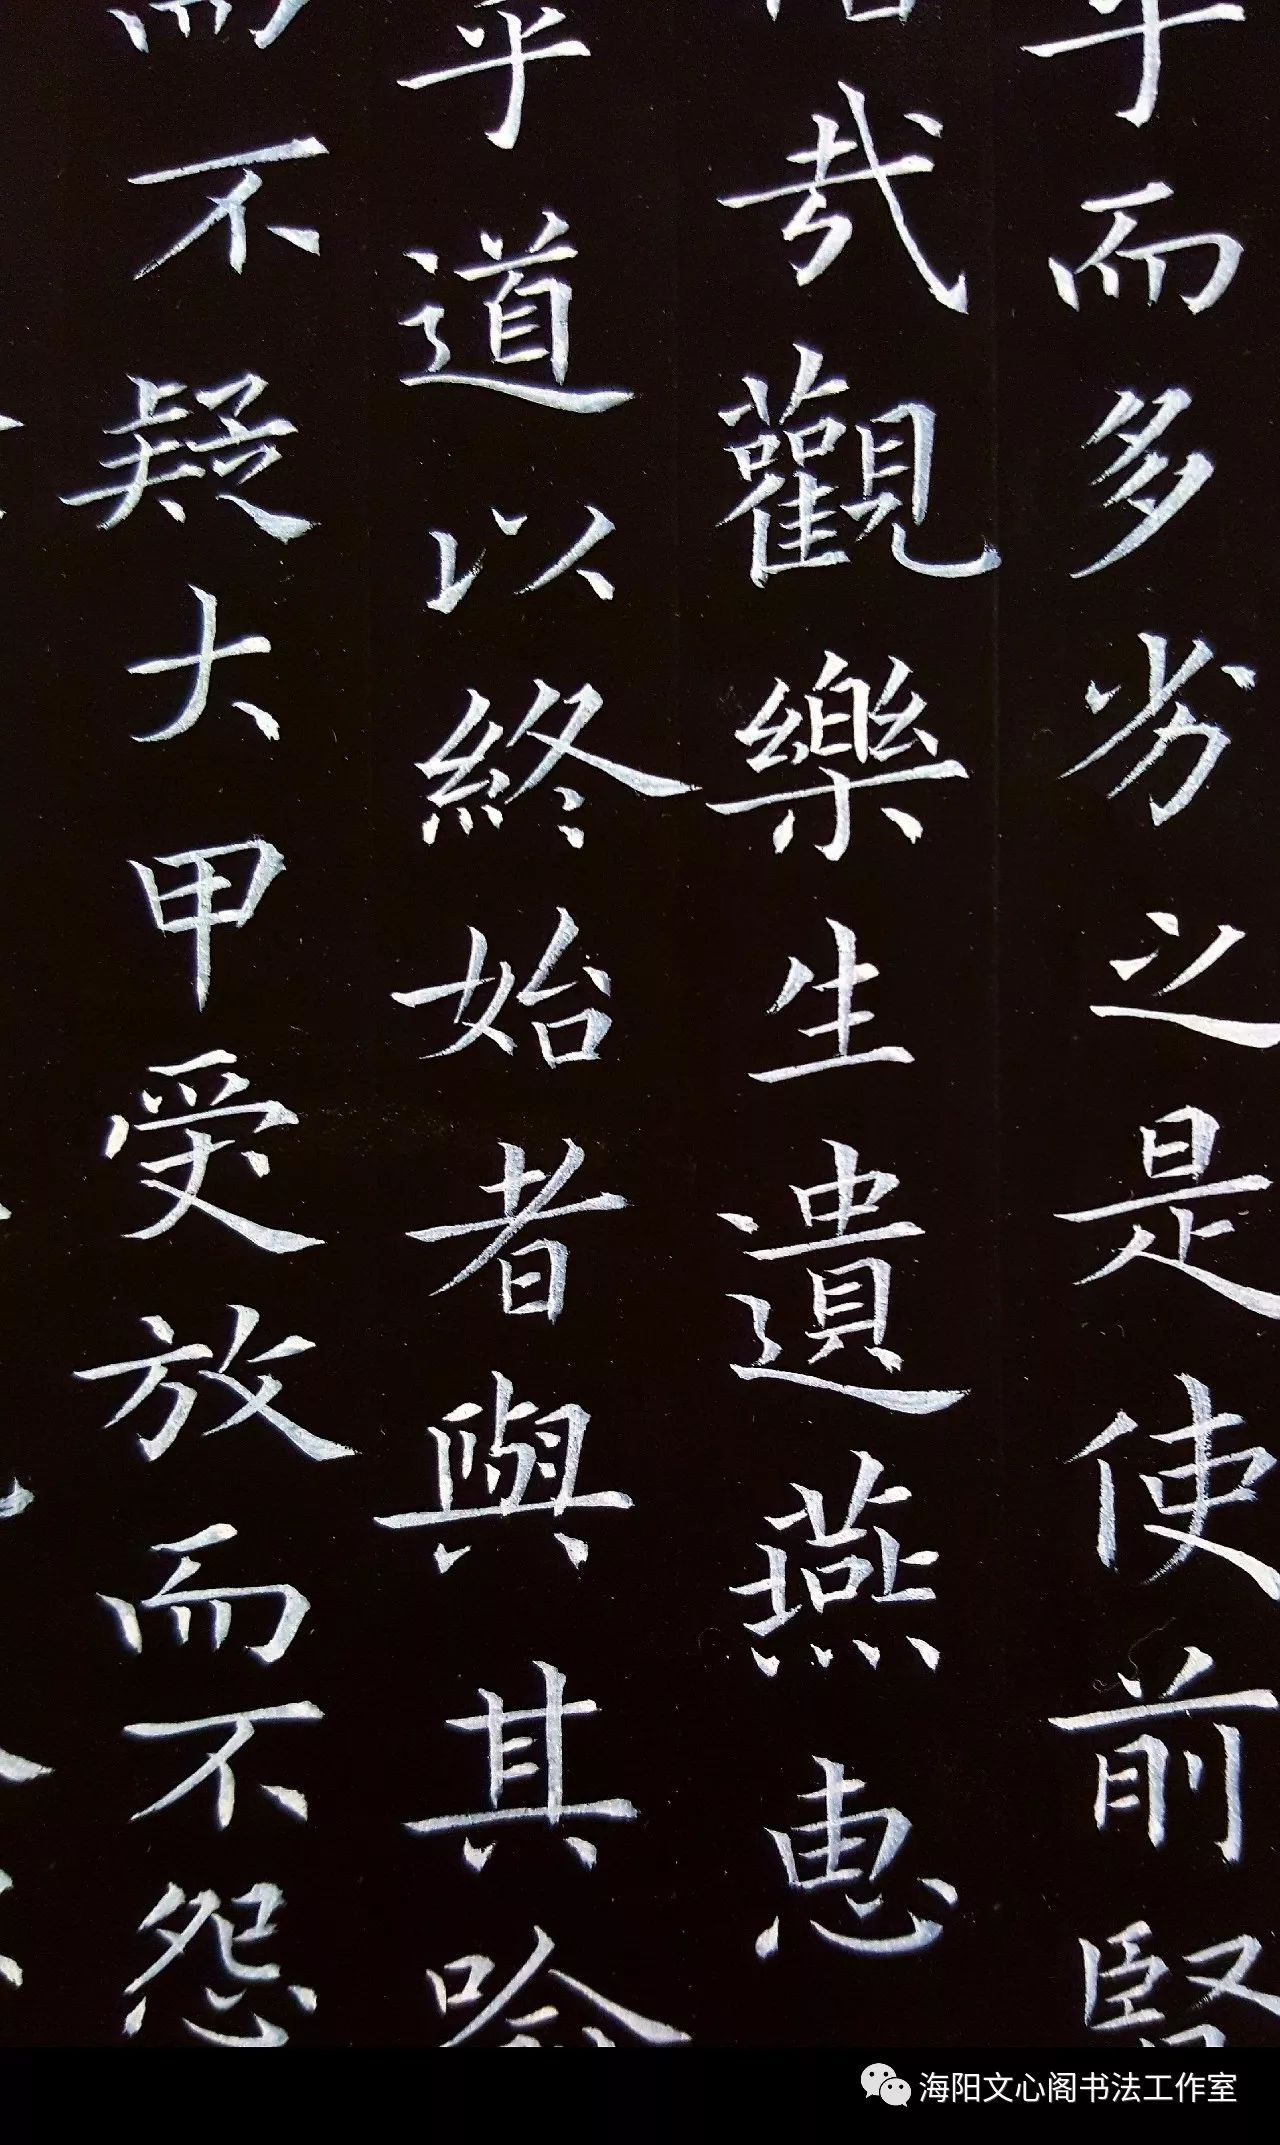 乎而多劣之是使前賢
哉觀樂生遺燕惠
乎道以終始者與其喻
而不疑大甲受放而不怨
海阳文心阁书法工作室